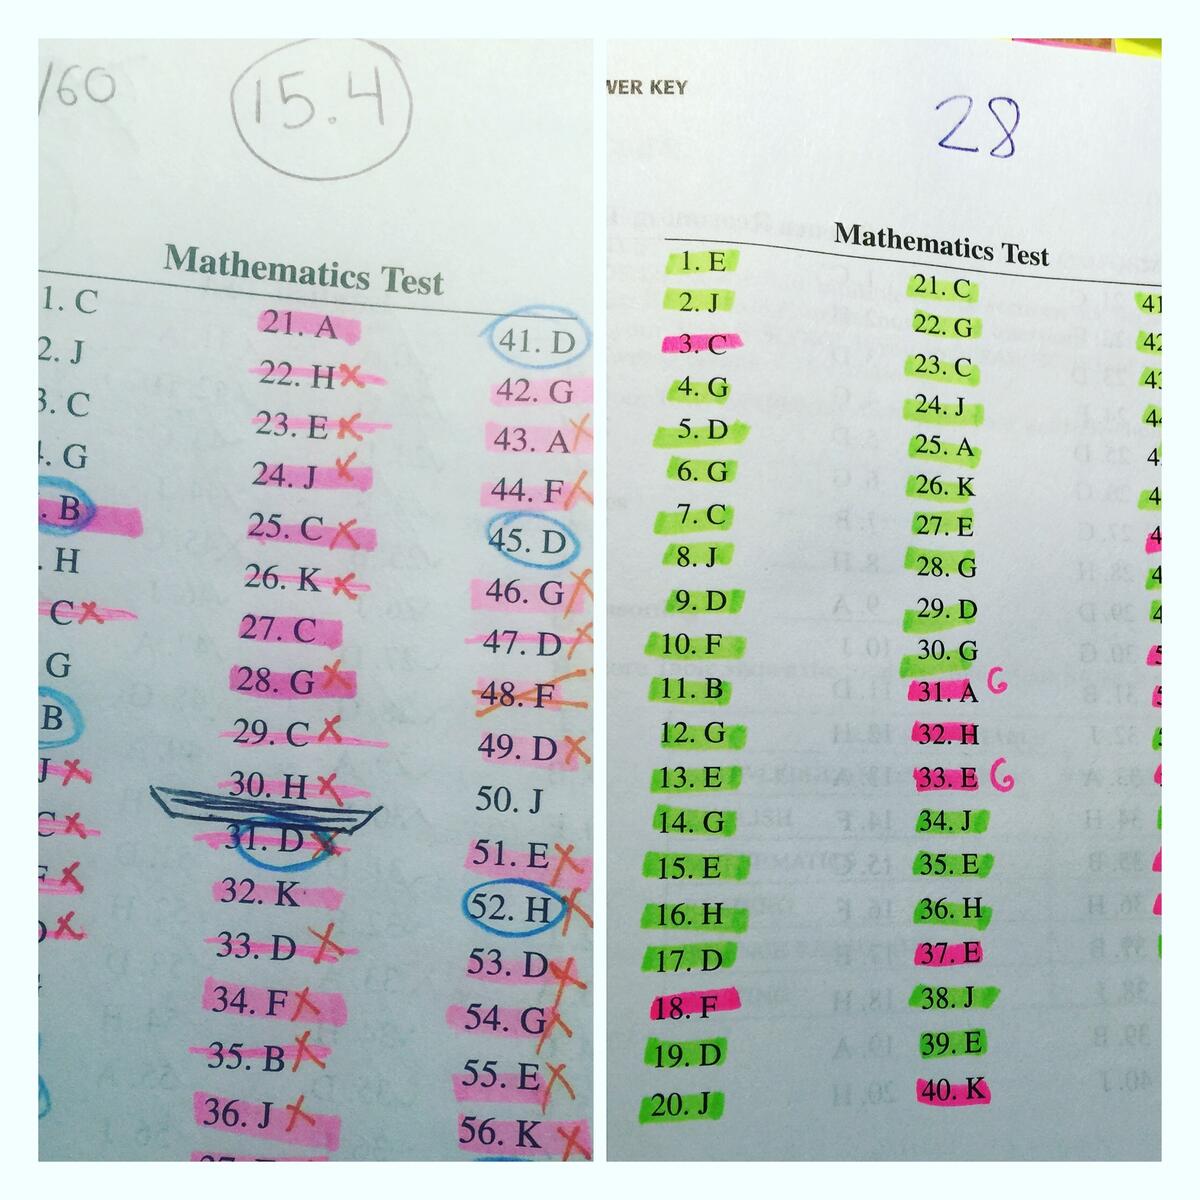 /60
15.4
Mathematics Test
1. C
2. J
3. C
. G
. B
. H
C
G
B
J
C
21. A
22. H
23. E
24. J
25. C
26. K
27. C
28. G
29. C
30. H
31. D
32. K
33. D
34. F
35. B
36. J
41. D
42. G
43. A
44. F
45. D
46. G
47. D
48. F
49. D
50. J
51. E
52. H
53. D
54. G
55. E
56. K
WER KEY
28
Mathematics Test
1. E
2. J
3. C
4. G
5. D
6. G
7. C
8. J
9. D
10. F
11. B
12. G
13. E
14. G
15. E
16. H
17. D
18. F
19. D
20. J
21. C
22. G
23. C
24. J
25. A
26. K
27. E
28. G
29. D
30. G
31. A G
32. H
33. E G
34. J
35. E
36. H
37. E
38. J
39. E
40. K
41
42